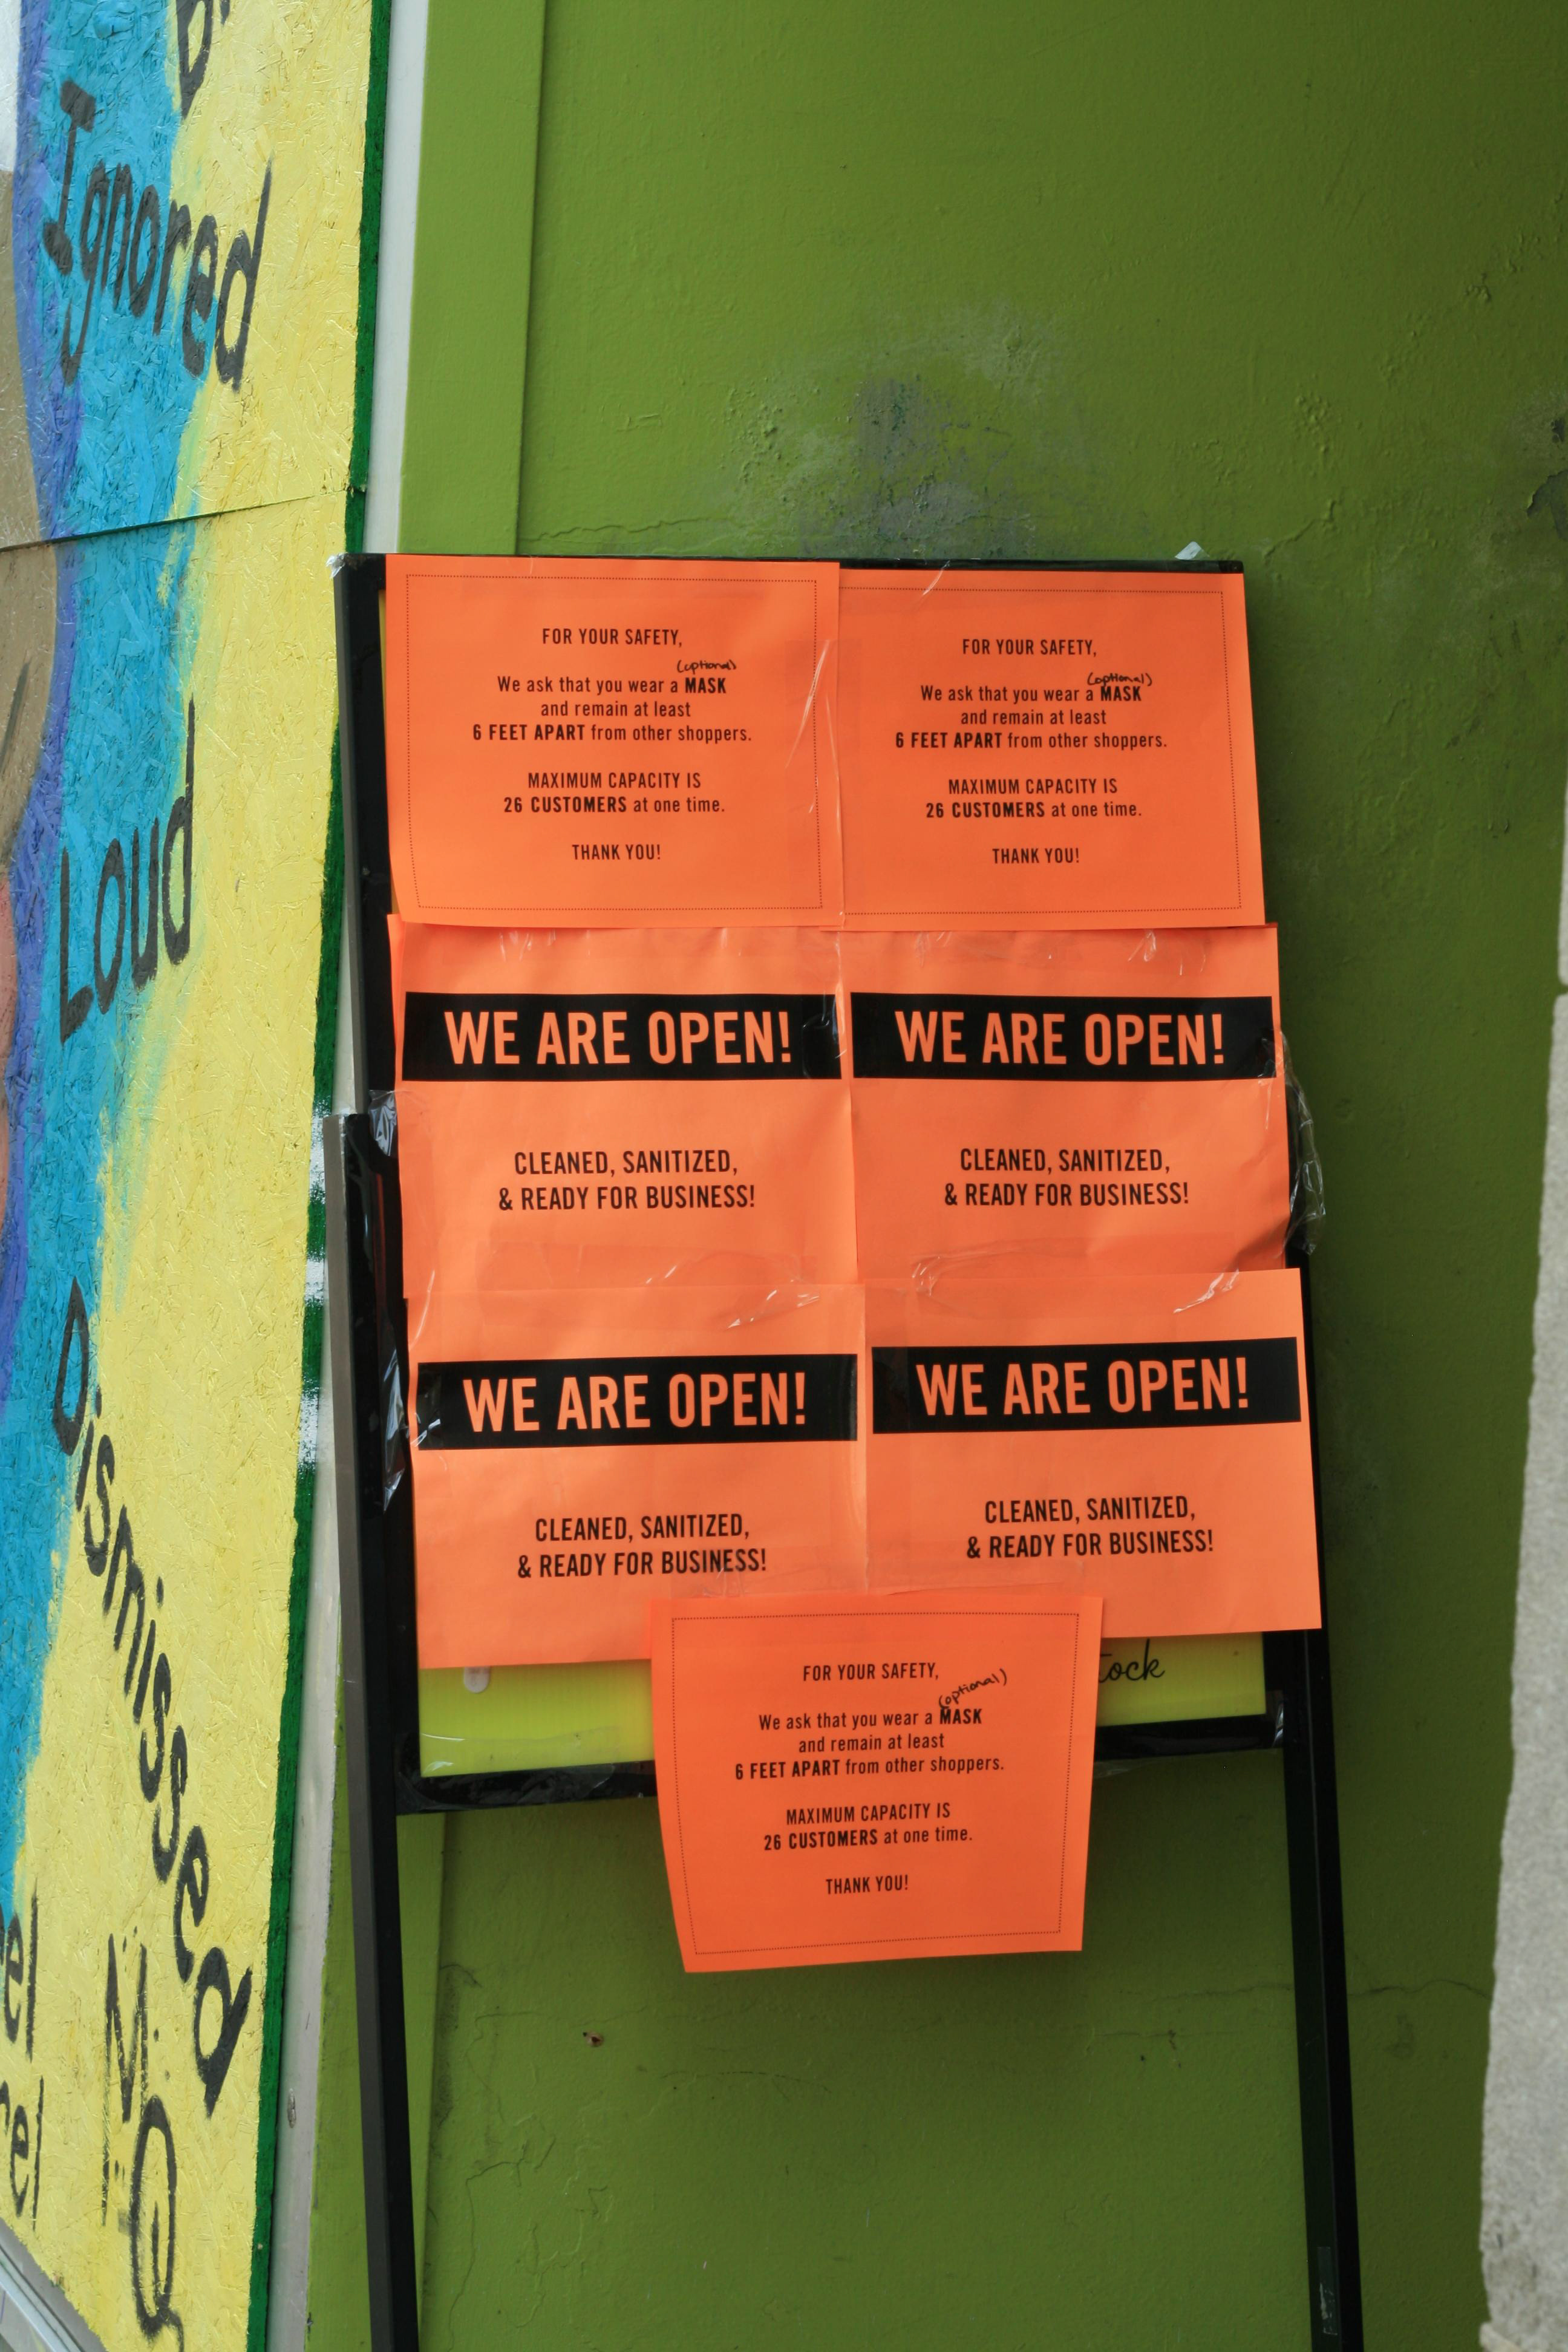 Ignored
Loud
Dismissed
FOR YOUR SAFETY,
(optional)
We ask that you wear a MASK
and remain at least
6 FEET APART from other shoppers.
MAXIMUM CAPACITY IS
26 CUSTOMERS at one time.
THANK YOU!
FOR YOUR SAFETY,
(optional)
We ask that you wear a MASK
and remain at least
6 FEET APART from other shoppers.
MAXIMUM CAPACITY IS
26 CUSTOMERS at one time.
THANK YOU!
WE ARE OPEN!
CLEANED, SANITIZED,
& READY FOR BUSINESS!
WE ARE OPEN!
CLEANED, SANITIZED,
& READY FOR BUSINESS!
WE ARE OPEN!
CLEANED, SANITIZED,
& READY FOR BUSINESS!
WE ARE OPEN!
CLEANED, SANITIZED,
& READY FOR BUSINESS!
tock
FOR YOUR SAFETY,
(optional)
We ask that you wear a MASK
and remain at least
6 FEET APART from other shoppers.
MAXIMUM CAPACITY IS
26 CUSTOMERS at one time.
THANK YOU!